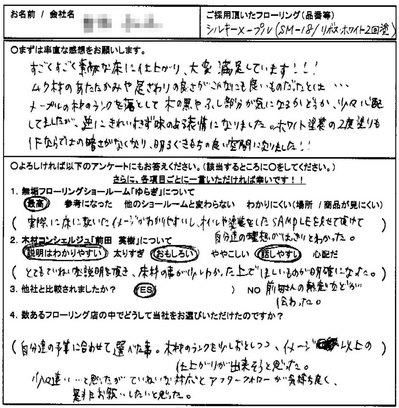 お名前 / 会社名
ご採用頂いたフローリング(品番等)
シルキーメープル(SM-18/リボスホワイト2回塗)
○まずは率直な感想をお願いします。
すごくすごく素敵な床に仕上がり、大変満足しています!!!
ムク材のあたたかみや足ざわりの良さがこんなにも良いものだったとは…
メープルの木材のランクを落として木の黒やふし部分が気になるかどうか、少々心配
してましたが、逆にきれいすぎず味のある表情になりました。ホワイト塗装の2度塗りも
作ならではの暗さがなくなり、明るくきもちの良い空間になりました!!
○よろしければ以下のアンケートにもお答えください。(該当するところに○をしてください。)
さらに、各項目ごとに一言いただければ幸いです!!
1. 無垢フローリングショールーム「ゆらぎ」について
最高 参考になった 他のショールームと変わらない わかりにくい(場所 / 商品が見にくい)
(実際に床に敷いたイメージがわかりやすいし、オイルや塗装をしたSAMPLEを見せて頂けて
自分達の理想がはっきりとわかった。)
2. 木材コンシェルジュ「前田 英樹」について
説明はわかりやすい 太りすぎ おもしろい ややこしい 話しやすい 心配だ
(とてもていねいな説明を頂き、床材の事が少しわかった上でほしいものが明確になった。)
3. 他社と比較されましたか? YES NO
前田さんの熱意などが
伝わった。
4. 数あるフローリング店の中でどうして当社をお選びいただけたのですか?
(自分達の予算に合わせて選べた事。木材のランクを少しおとしつつ、イメージ以上の
仕上がりが出来そうと思った。)
少し遠い…と思ったがていねいな対応とアフターフォローが気持ち良く、
是非お願いしたいと思った。